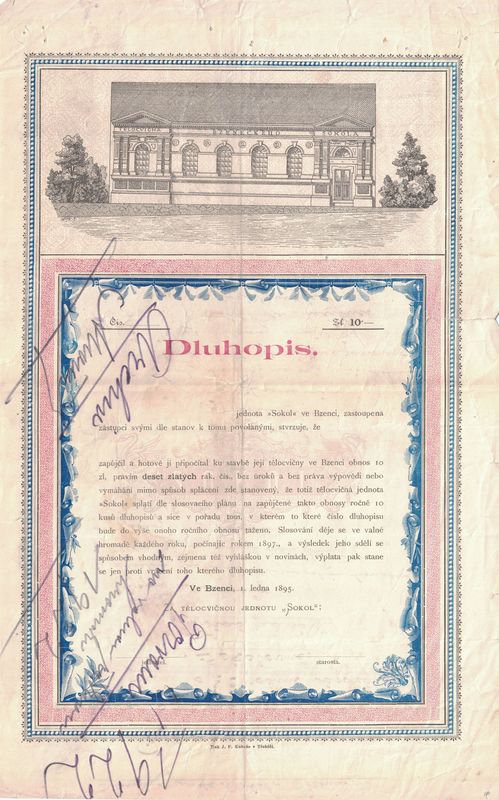 TĚLOCVIČNA BZENECKÉHO SOKOLA
Čís. Zl 10·—
Dluhopis.
jednota »Sokol« ve Bzenci, zastoupena
zástupci svými dle stanov k tomu povolanými, stvrzuje, že
zapůjčil a hotově jí připočítal ku stavbě její tělocvičny ve Bzenci obnos 10
zl., pravím deset zlatých rak. čís., bez úroků a bez práva výpovědi nebo
vymáhání mimo způsob splácení zde stanovený, že totiž tělocvičná jednota
»Sokol« splatí dle slosovacího plánu na zapůjčené takto obnosy ročně 10
kusů dluhopisů a sice v pořadu tom, v kterém to které číslo dluhopisu
bude do výše onoho ročního obnosu taženo. Slosování děje se ve valné
hromadě každého roku, počínajíc rokem 1897., a výsledek jeho sdělí se
způsobem vhodným, zejména též vyhláškou v novinách, výplata pak stane
se jen proti vrácení toho kterého dluhopisu.
Ve Bzenci, 1. ledna 1895.
ZA TĚLOCVIČNOU JEDNOTU „SOKOL“:
jednatel. starosta.
Tisk J. F. Kubeše v Třebíči.
Archiv
1922